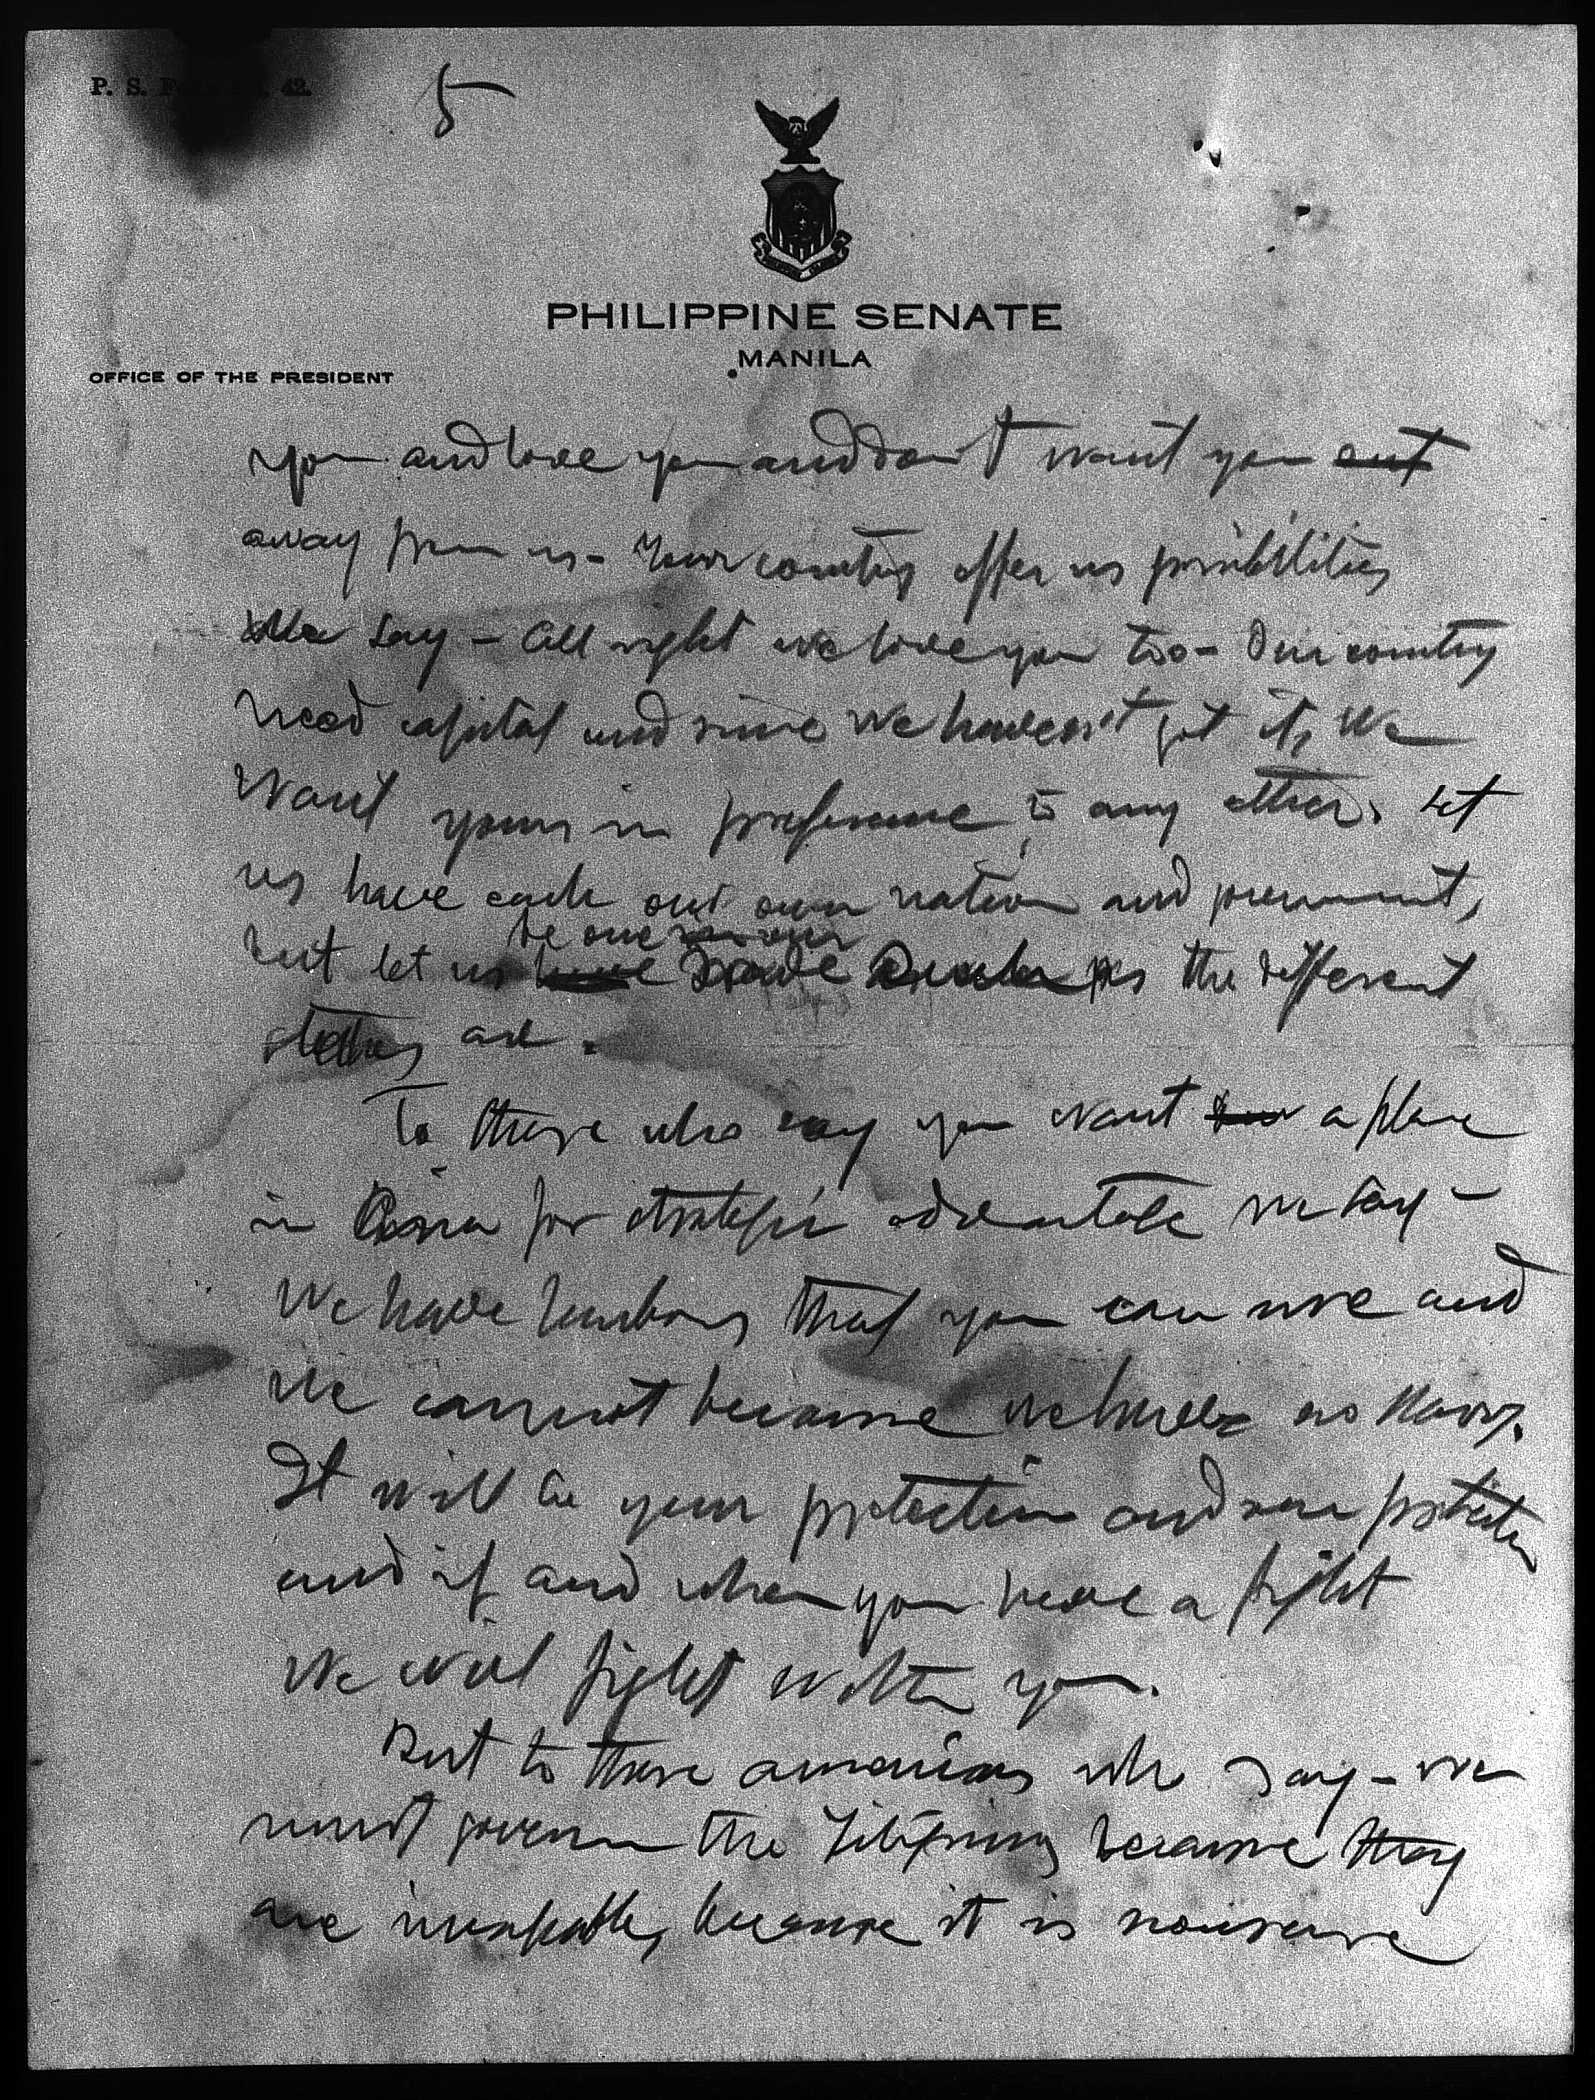 P. S. F 42.
5
PHILIPPINE SENATE
MANILA
OFFICE OF THE PRESIDENT
you and love you and don't want you out
away from us - Your country offer us possibilities
We say - All right we love you too - Our country
need capital and since we haven't got it, we
want yours in preference to any other. Let
us have each our own nation and government,
be one
but let us trade as the different
states are.
To those who say you want a place
in Asia for strategic advantage we say -
We have harbors that you can use and
we cannot because we have no Navy.
It will be your protection and our protection
and if and when you have a fight
we will fight with you.
But to those americans who say - we
must govern the Filipinos because they
are incapable, because it is nonsense